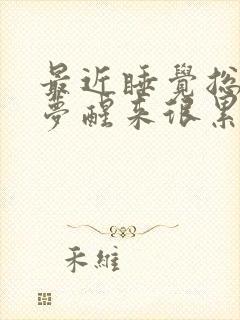 最近睡覺總
夢醒來很累
禾維